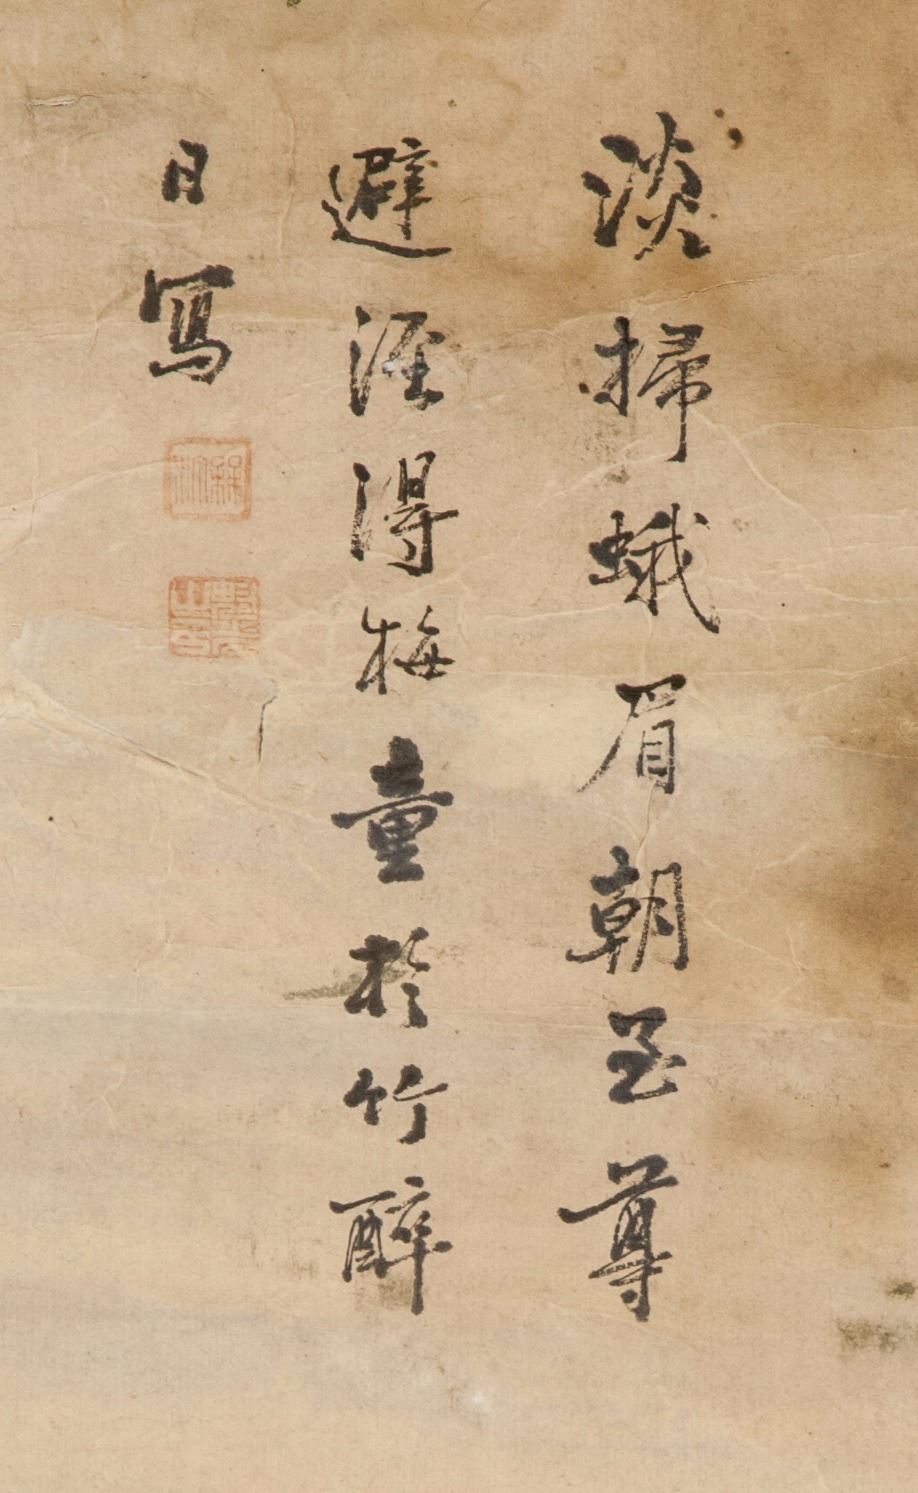 淡掃蛾眉朝至尊
避涇得梅童於竹醉
日寫